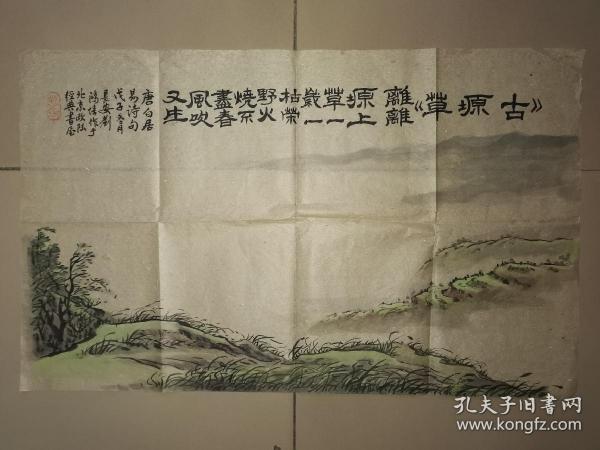 《古塬草》
離離
塬上
草一
歲一
枯榮
野火
燒不
盡春
風吹
又生
唐白居
易詩句
戊子冬月
長安劉
作于
北京
經典書屋
孔夫子旧書网
www.kongfz.com